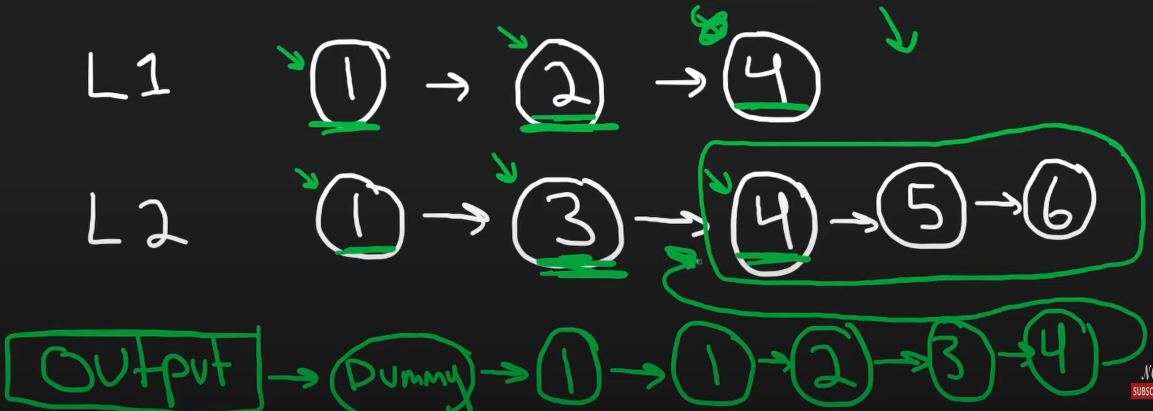 L1 1 → 2 → 4
L2 1 → 3 → 4 → 5 → 6
Output → Dummy → 1 → 1 → 2 → 3 → 4